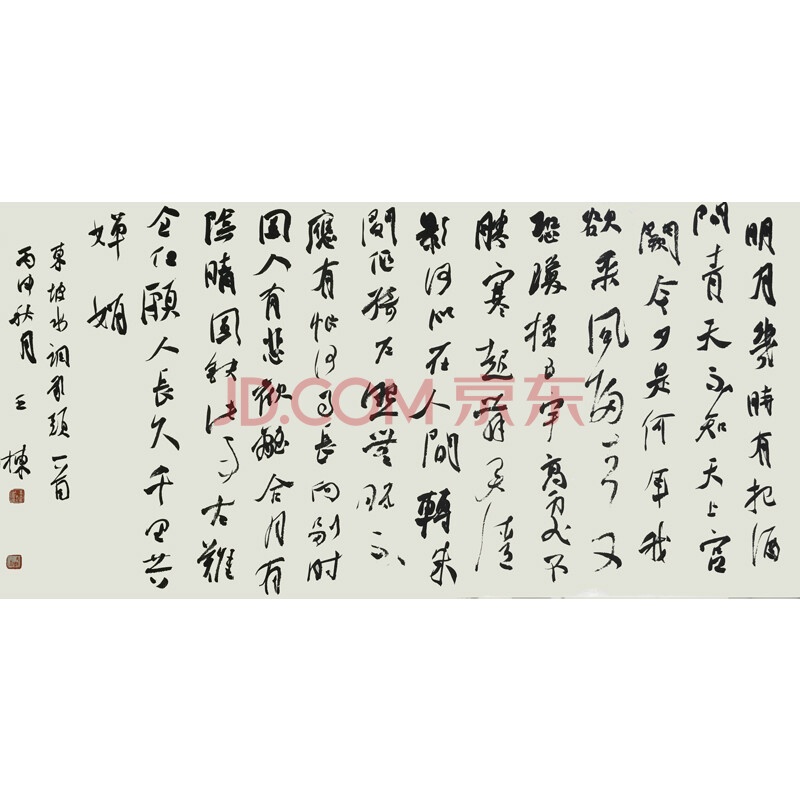 明月幾時有把酒
問青天不知天上宫
闕今夕是何年我
欲乘風歸去又
恐瓊樓玉宇高處不
勝寒起舞弄清
影何似在人間轉朱
閣低綺户照無眠不
應有恨何事長向别時
圓人有悲歡離合月有
陰晴圓缺此事古難
全但願人長久千里共
嬋娟
東坡水調歌頭一首
丙申秋月 王棟
JD.COM 京东